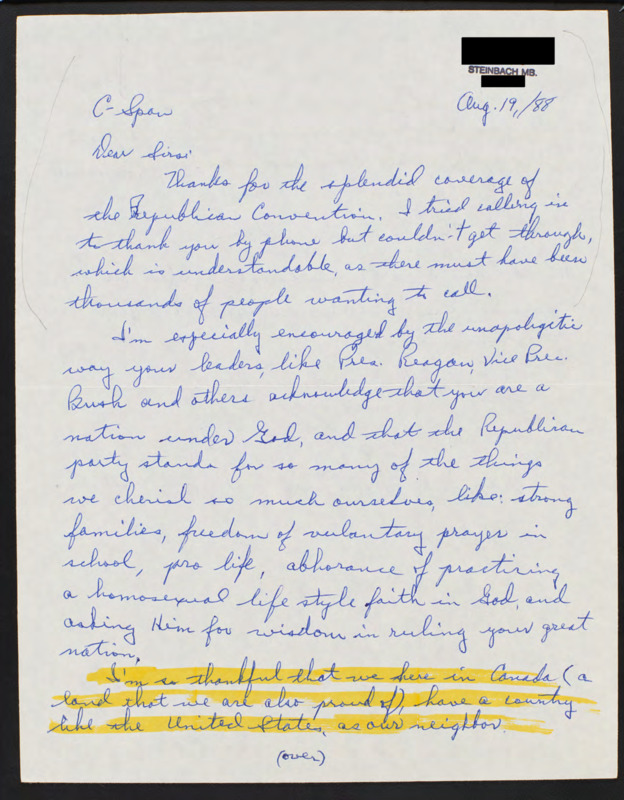 STEINBACH MB.
Aug. 19,/88
C-Span
Dear Sirs:
Thanks for the splendid coverage of
the Republican Convention. I tried calling in
to thank you by phone but couldn't get through,
which is understandable, as there must have been
thousands of people wanting to call.
I'm especially encouraged by the unapoligitic
way your leaders, like Pres. Reagan, Vice Pres.
Bush and others acknowledge that you are a
nation under God, and that the Republican
party stands for so many of the things
we cherish so much ourselves, like: strong
families, freedom of vuluntary prayer in
school, pro life, abhorance of practising
a homosexual life style faith in God, and
asking Him for wisdom in ruling your great
nation.
I'm so thankful that we here in Canada (a
land that we are also proud of), have a country
like the United States, as our neighbor.
(over)